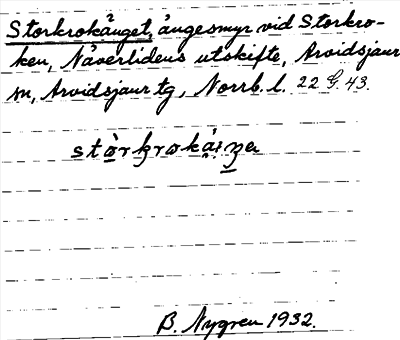 Storkrokånget, ångesmyr vid Storkro-
ken, Nåverlidens utskifte, Arvidsjaur
sn, Arvidsjaur tg, Norrb. l. 22 G 43.
B. Nygren 1932.